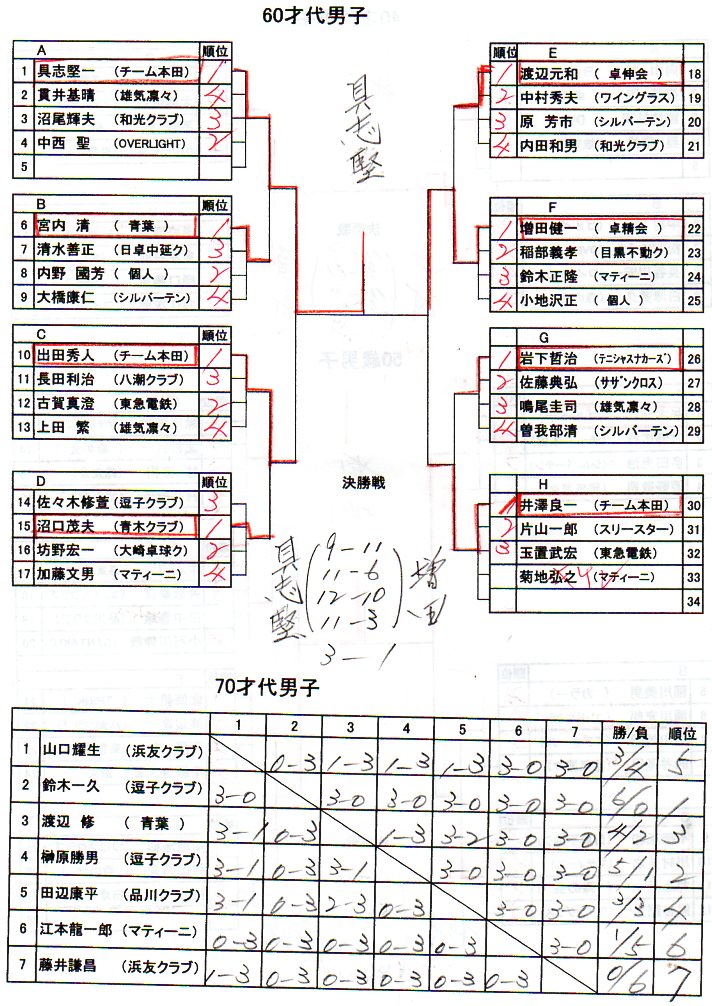 60才代男子
A 順位
1 具志堅一 (チーム本田) 1
2 貫井基晴 (雄気凛々) 4
3 沼尾輝夫 (和光クラブ) 3
4 中西 聖 (OVERLIGHT) 2
5
B 順位
6 宮内 清 (青葉) 1
7 清水善正 (日卓中延ク) 3
8 内野 國芳 (個人) 2
9 大橋康仁 (シルバーテン) 4
C 順位
10 出田秀人 (チーム本田) 1
11 長田利治 (八潮クラブ) 3
12 古賀真澄 (東急電鉄) 2
13 上田 繁 (雄気凛々) 4
D 順位
14 佐々木修萱 (逗子クラブ) 3
15 沼口茂夫 (青木クラブ) 1
16 坊野宏一 (大崎卓球ク) 2
17 加藤文男 (マティーニ) 4
具志堅
順位 E
1 渡辺元和 (卓伸会) 18
2 中村秀夫 (ワイングラス) 19
3 原 芳市 (シルバーテン) 20
4 内田和男 (和光クラブ) 21
F
1 増田健一 (卓精会) 22
2 稲部義孝 (目黒不動ク) 23
3 鈴木正隆 (マティーニ) 24
4 小地沢正 (個人) 25
G
1 岩下哲治 (テニシャスナカーズ) 26
2 佐藤典弘 (サザンクロス) 27
3 鳴尾圭司 (雄気凛々) 28
4 曽我部清 (シルバーテン) 29
H
1 井澤良一 (チーム本田) 30
2 片山一郎 (スリースター) 31
3 玉置武宏 (東急電鉄) 32
菊地弘之 (マティーニ) 33
34
決勝戦
具志堅 増田
9-11
11-6
12-10
11-3
3-1
70才代男子
1 2 3 4 5 6 7 勝/負 順位
1 山口耀生 (浜友クラブ) 0-3 1-3 1-3 1-3 3-0 3-0 3/4 5
2 鈴木一久 (逗子クラブ) 3-0 3-0 3-0 3-0 3-0 3-0 6/0 1
3 渡辺 修 (青葉) 3-1 0-3 1-3 3-2 3-0 3-0 4/2 3
4 榊原勝男 (逗子クラブ) 3-1 0-3 3-1 3-0 3-0 3-0 5/1 2
5 田辺康平 (品川クラブ) 3-1 0-3 2-3 0-3 3-0 3-0 3/3 4
6 江本龍一郎 (マティーニ) 0-3 0-3 0-3 0-3 0-3 3-0 1/5 6
7 藤井謙昌 (浜友クラブ) 1-3 0-3 0-3 0-3 0-3 0-3 0/6 7